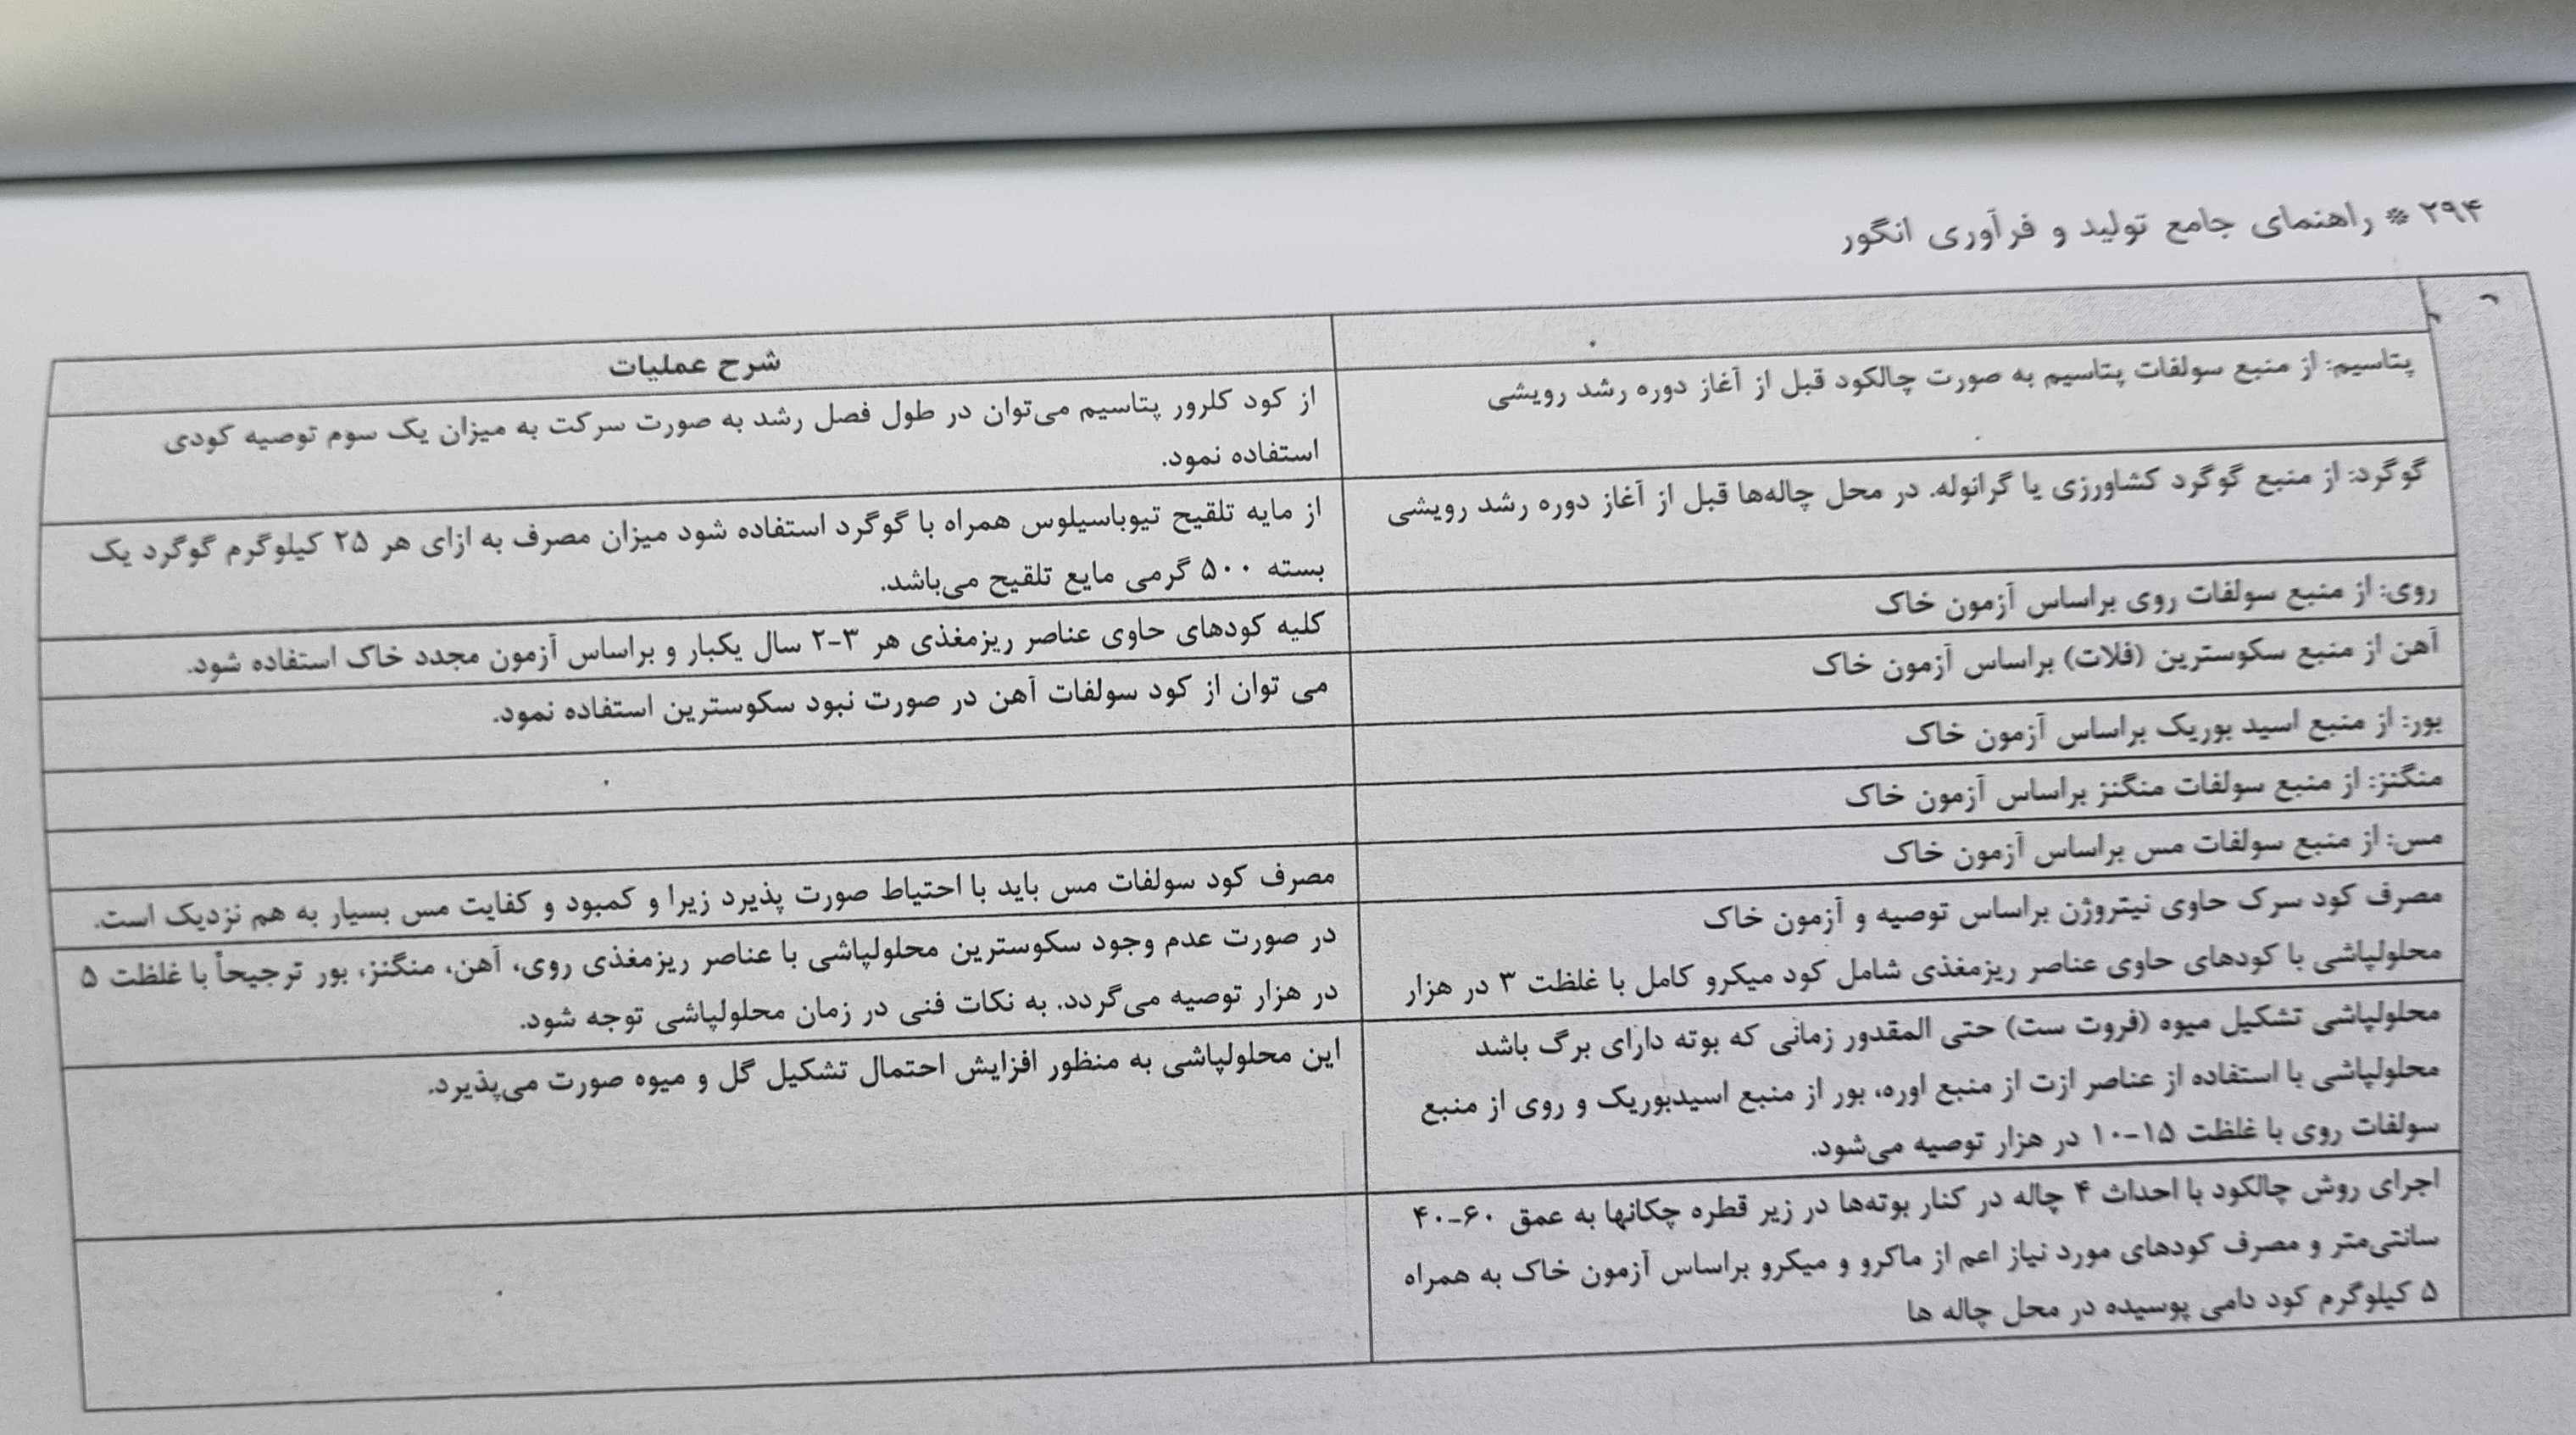 ۲۹۴ * راهنمای جامع تولید و فرآوری انگور
شرح عملیات
پتاسیم: از منبع سولفات پتاسیم به صورت چالکود قبل از آغاز دوره رشد رویشی
از کود کلرور پتاسیم می‌توان در طول فصل رشد به صورت سرکت به میزان یک سوم توصیه کودی
استفاده نمود.
گوگرد: از منبع گوگرد کشاورزی یا گرانوله. در محل چاله‌ها قبل از آغاز دوره رشد رویشی
از مایه تلقیح تیوباسیلوس همراه با گوگرد استفاده شود میزان مصرف به ازای هر ۲۵ کیلوگرم گوگرد یک
بسته ۵۰۰ گرمی مایع تلقیح می‌باشد.
روی: از منبع سولفات روی براساس آزمون خاک
کلیه کودهای حاوی عناصر ریزمغذی هر ۳-۲ سال یکبار و براساس آزمون مجدد خاک استفاده شود.
آهن از منبع سکوسترین (فلات) براساس آزمون خاک
می توان از کود سولفات آهن در صورت نبود سکوسترین استفاده نمود.
بور: از منبع اسید بوریک براساس آزمون خاک
منگنز: از منبع سولفات منگنز براساس آزمون خاک
مس: از منبع سولفات مس براساس آزمون خاک
مصرف کود سولفات مس باید با احتیاط صورت پذیرد زیرا و کمبود و کفایت مس بسیار به هم نزدیک است.
مصرف کود سرک حاوی نیتروژن براساس توصیه و آزمون خاک
محلولپاشی با کودهای حاوی عناصر ریزمغذی شامل کود میکرو کامل با غلظت ۳ در هزار
در صورت عدم وجود سکوسترین محلولپاشی با عناصر ریزمغذی روی، آهن، منگنز، بور ترجیحاً با غلظت ۵
در هزار توصیه می‌گردد. به نکات فنی در زمان محلولپاشی توجه شود.
محلولپاشی تشکیل میوه (فروت ست) حتی المقدور زمانی که بوته دارای برگ باشد
محلولپاشی با استفاده از عناصر ازت از منبع اوره، بور از منبع اسیدبوریک و روی از منبع
سولفات روی با غلظت ۱۵-۱۰ در هزار توصیه می‌شود.
این محلولپاشی به منظور افزایش احتمال تشکیل گل و میوه صورت می‌پذیرد.
اجرای روش چالکود با احداث ۴ چاله در کنار بوته‌ها در زیر قطره چکانها به عمق ۶۰-۴۰
سانتی‌متر و مصرف کودهای مورد نیاز اعم از ماکرو و میکرو براساس آزمون خاک به همراه
۵ کیلوگرم کود دامی پوسیده در محل چاله ها